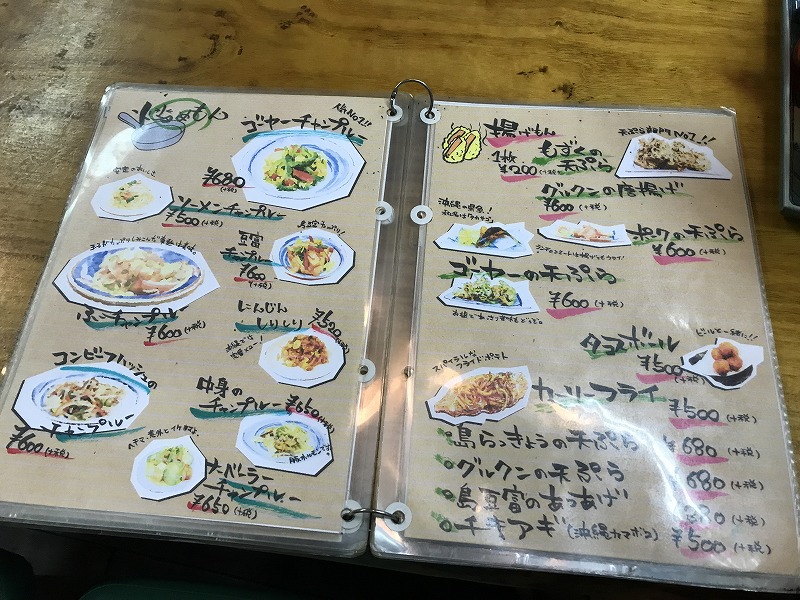 いためもん
人気No.1!!
ゴーヤーチャンプルー
¥680
(+税)
ソーメンチャンプルー
¥500 (+税)
豆富
チャンプルー
¥600 (+税)
ふーチャンプルー
¥600 (+税)
にんじん
しりしり
¥500 (+税)
コンビーフハッシュの
チャンプルー
¥600 (+税)
中身の
チャンプルー ¥650 (+税)
ヘチマ。意外とイケます。
ナーベーラー
チャンプルー
¥650 (+税)
揚げもん
もずくの
天ぷら
1枚
¥200 (+税)
天ぷら No.1!!
グルクンの唐揚げ
¥600 (+税)
沖縄の県魚!
ポークの天ぷら
¥600 (+税)
ゴーヤーの天ぷら
¥600 (+税)
タコボール
¥500 (+税)
ビールと一緒に!!
スパイラルな
フライドポテト
カーリーフライ
¥500 (+税)
島らっきょうの天ぷら ¥680 (+税)
グルクンの天ぷら ¥680 (+税)
島豆富のあつあげ
(+税)
チキアギ(沖縄カマボコ) ¥500 (+税)